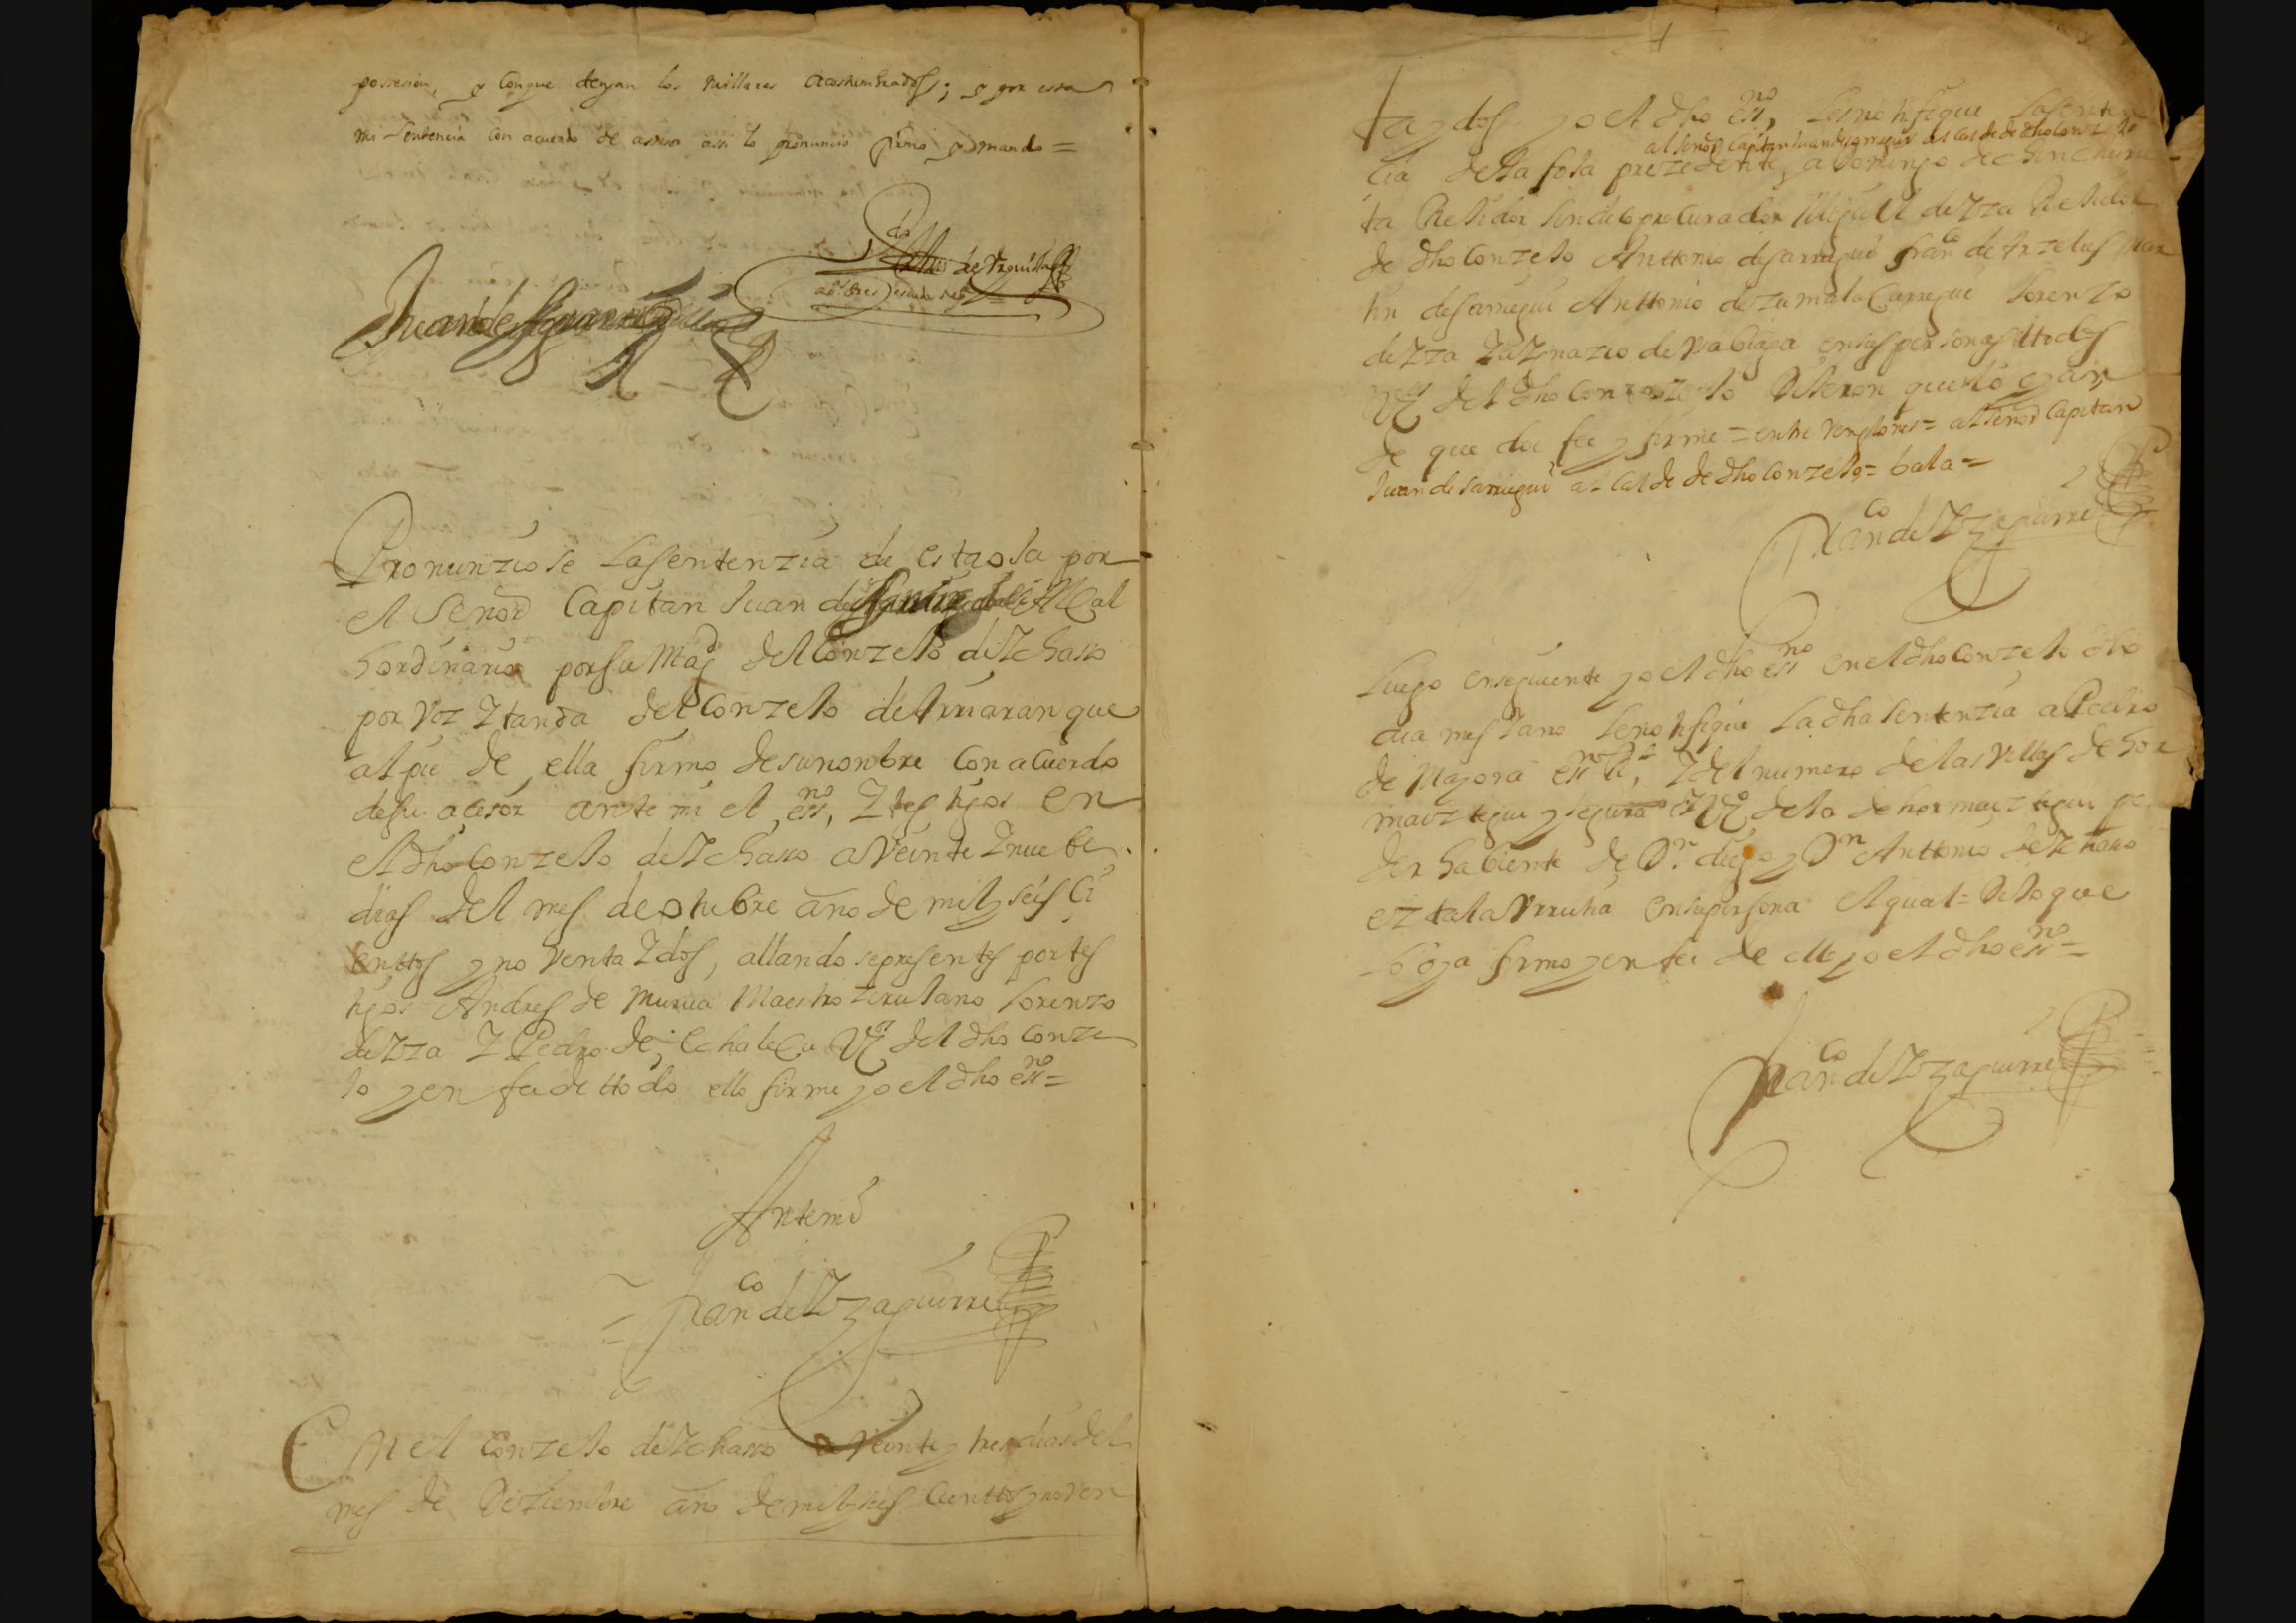 possesion, y Conque tengan los millares acostumbrados; y por esta
mi sentencia con acuerdo de asesor assi lo pronuncio firmo y mando =
Juan de
de Vrquiola
Pronunziose la sentenzia de esta oja por
el Señor Capitan Juan de Alcal
hordinario por su Magd del Conzejo de Ychasso
por voz Y tanda del Conzejo de Arriaran que
al pie de ella firmo de su nonbre con acuerdo
de su acesor ante mi el essno, Y testigos en
el dho Conzejo de Ychasso a Veinte Y nuebe
dias del mes de otubre año de mil y seis Ci
enttos y no venta Y dos, allandose presentes por tes
tigos Andres de Murua Maestro zirujano Lorenzo
de Yza Y Pedro de EchaleCu Vzos del dho conze
jo y en fee de ttodo ello firme yo el dho essno =
Antemi
Franco de Yzaguirre
En el Conzejo de Ychasso a Veinte y tres dias del
mes de Deziembre año de mil y seis Cienttos y noven
ta y dos yo el dho essno, les notifique la senten
al señor Capitan Juan de Sarriegui alcalde de dho conzejo
cia de la foja prezedente, a Domingo de Chinchurre
ta Rexidor sindico procurador Miguel de Yza Rexidor
de dho Conzejo Anttonio de Sarriegui Franco de Arzelus Mar
tin de Sarriegui Anttonio de Zumala Carregui Lorenzo
de Yza Y Ygnazio de en sus personas ttodos
Vzos del dho Conzejo Dijeron que lo oyan
de que doi fee y firme = entre renglones = al señor Capitan
Juan de Sarriegui alcalde de dho Conzejo = bala =
Franco de Yzaguirre
Luego ensiguiente yo el dho essno en el dho Conzejo dho
dia mes Y año le notifique la dha sentenzia a Pedro
de Mayora essno Rl, Y del numero de las Villas de hor
maiztegui y segura Y Vzo de la de hormaiztegui po
der habiente de Dn diego y Dn Anttonio de Ychasso
en su persona el qual = Dijo que
lo oya firmo y en fee de ello yo el dho essno =
Franco de Yzaguirre